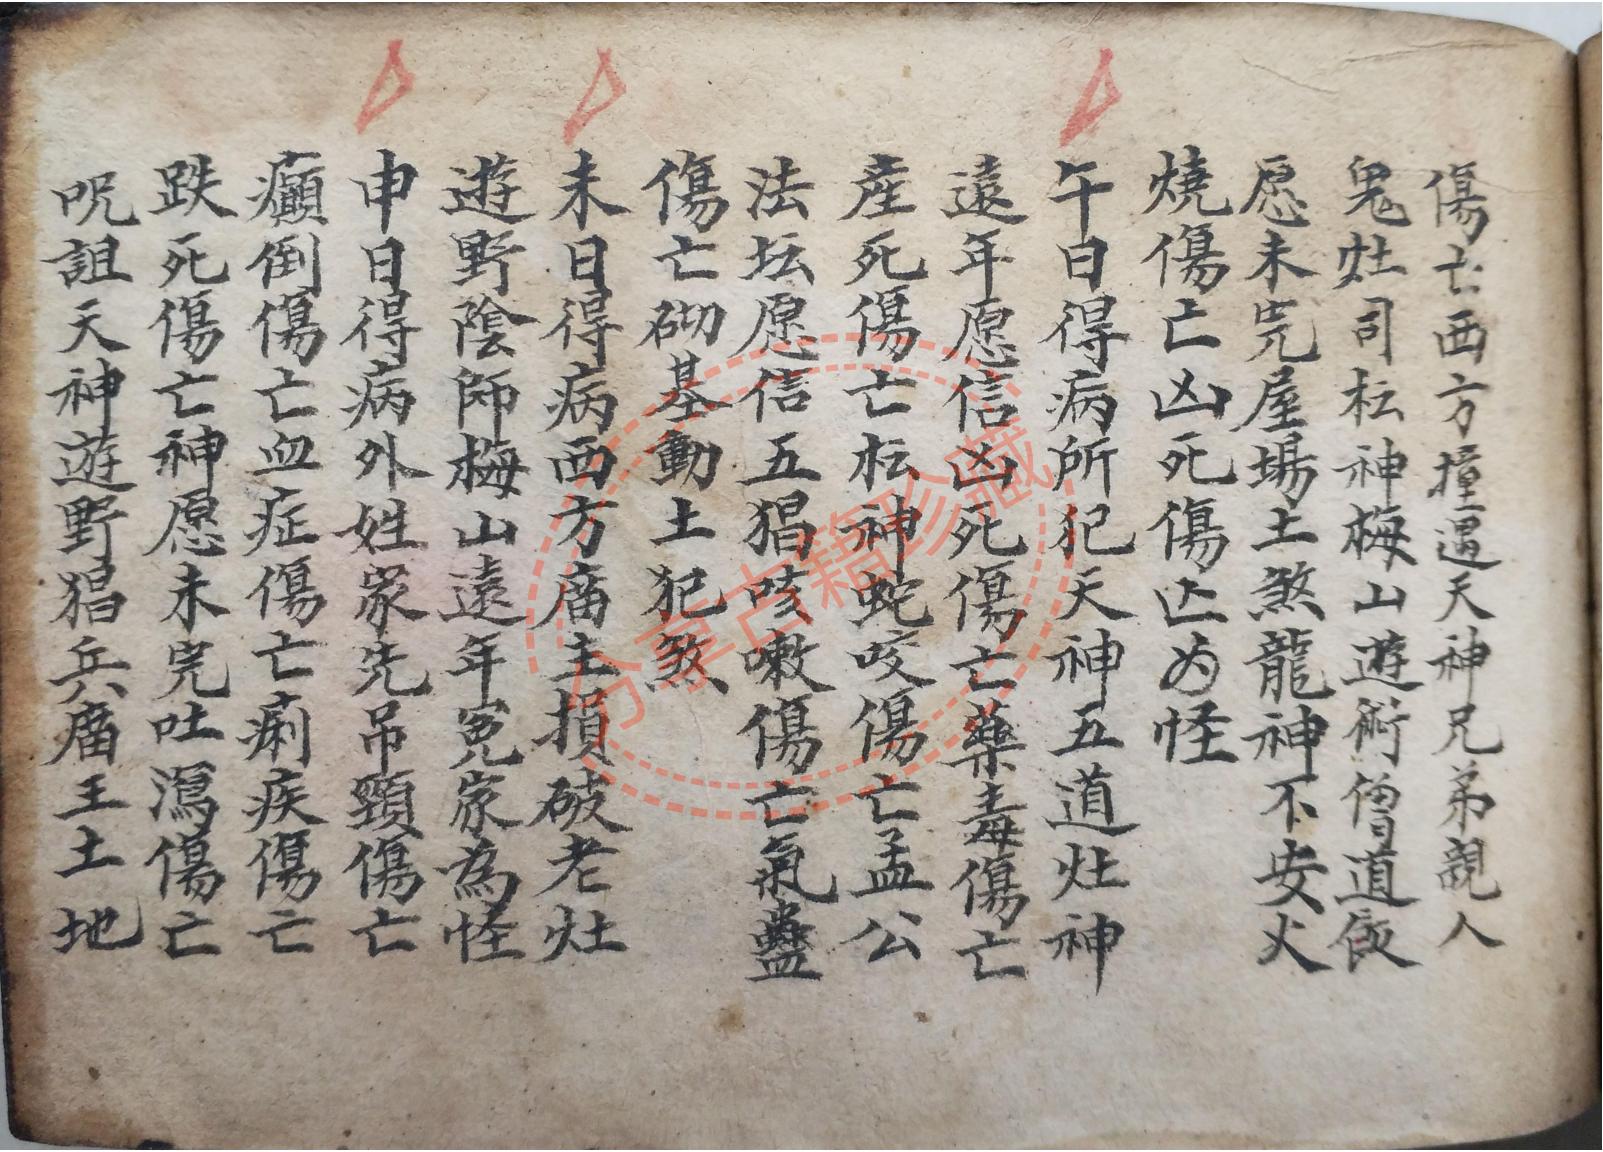 傷亡西方撞遇天神兄弟親人
鬼灶司枟神梅山遊術僧道
愿未完屋塲土煞龍神不安火
燒傷亡凶死傷亡为怪
午日得病所犯天神五道灶神
遠年愿信凶死傷亡藥毒傷亡
産死傷亡枟神蛇咬傷亡孟公
法坛愿信五猖咳嗽傷亡氣蠱
傷亡砌基動土犯煞
未日得病西方庿主損破老灶
遊野陰師梅山遠年冤家為怪
申日得病外姓家先吊頸傷亡
癲倒傷亡血症傷亡痢疾傷亡
跌死傷亡神愿未完吐瀉傷亡
呪詛天神遊野猖兵庿王土地
分享古籍珍藏